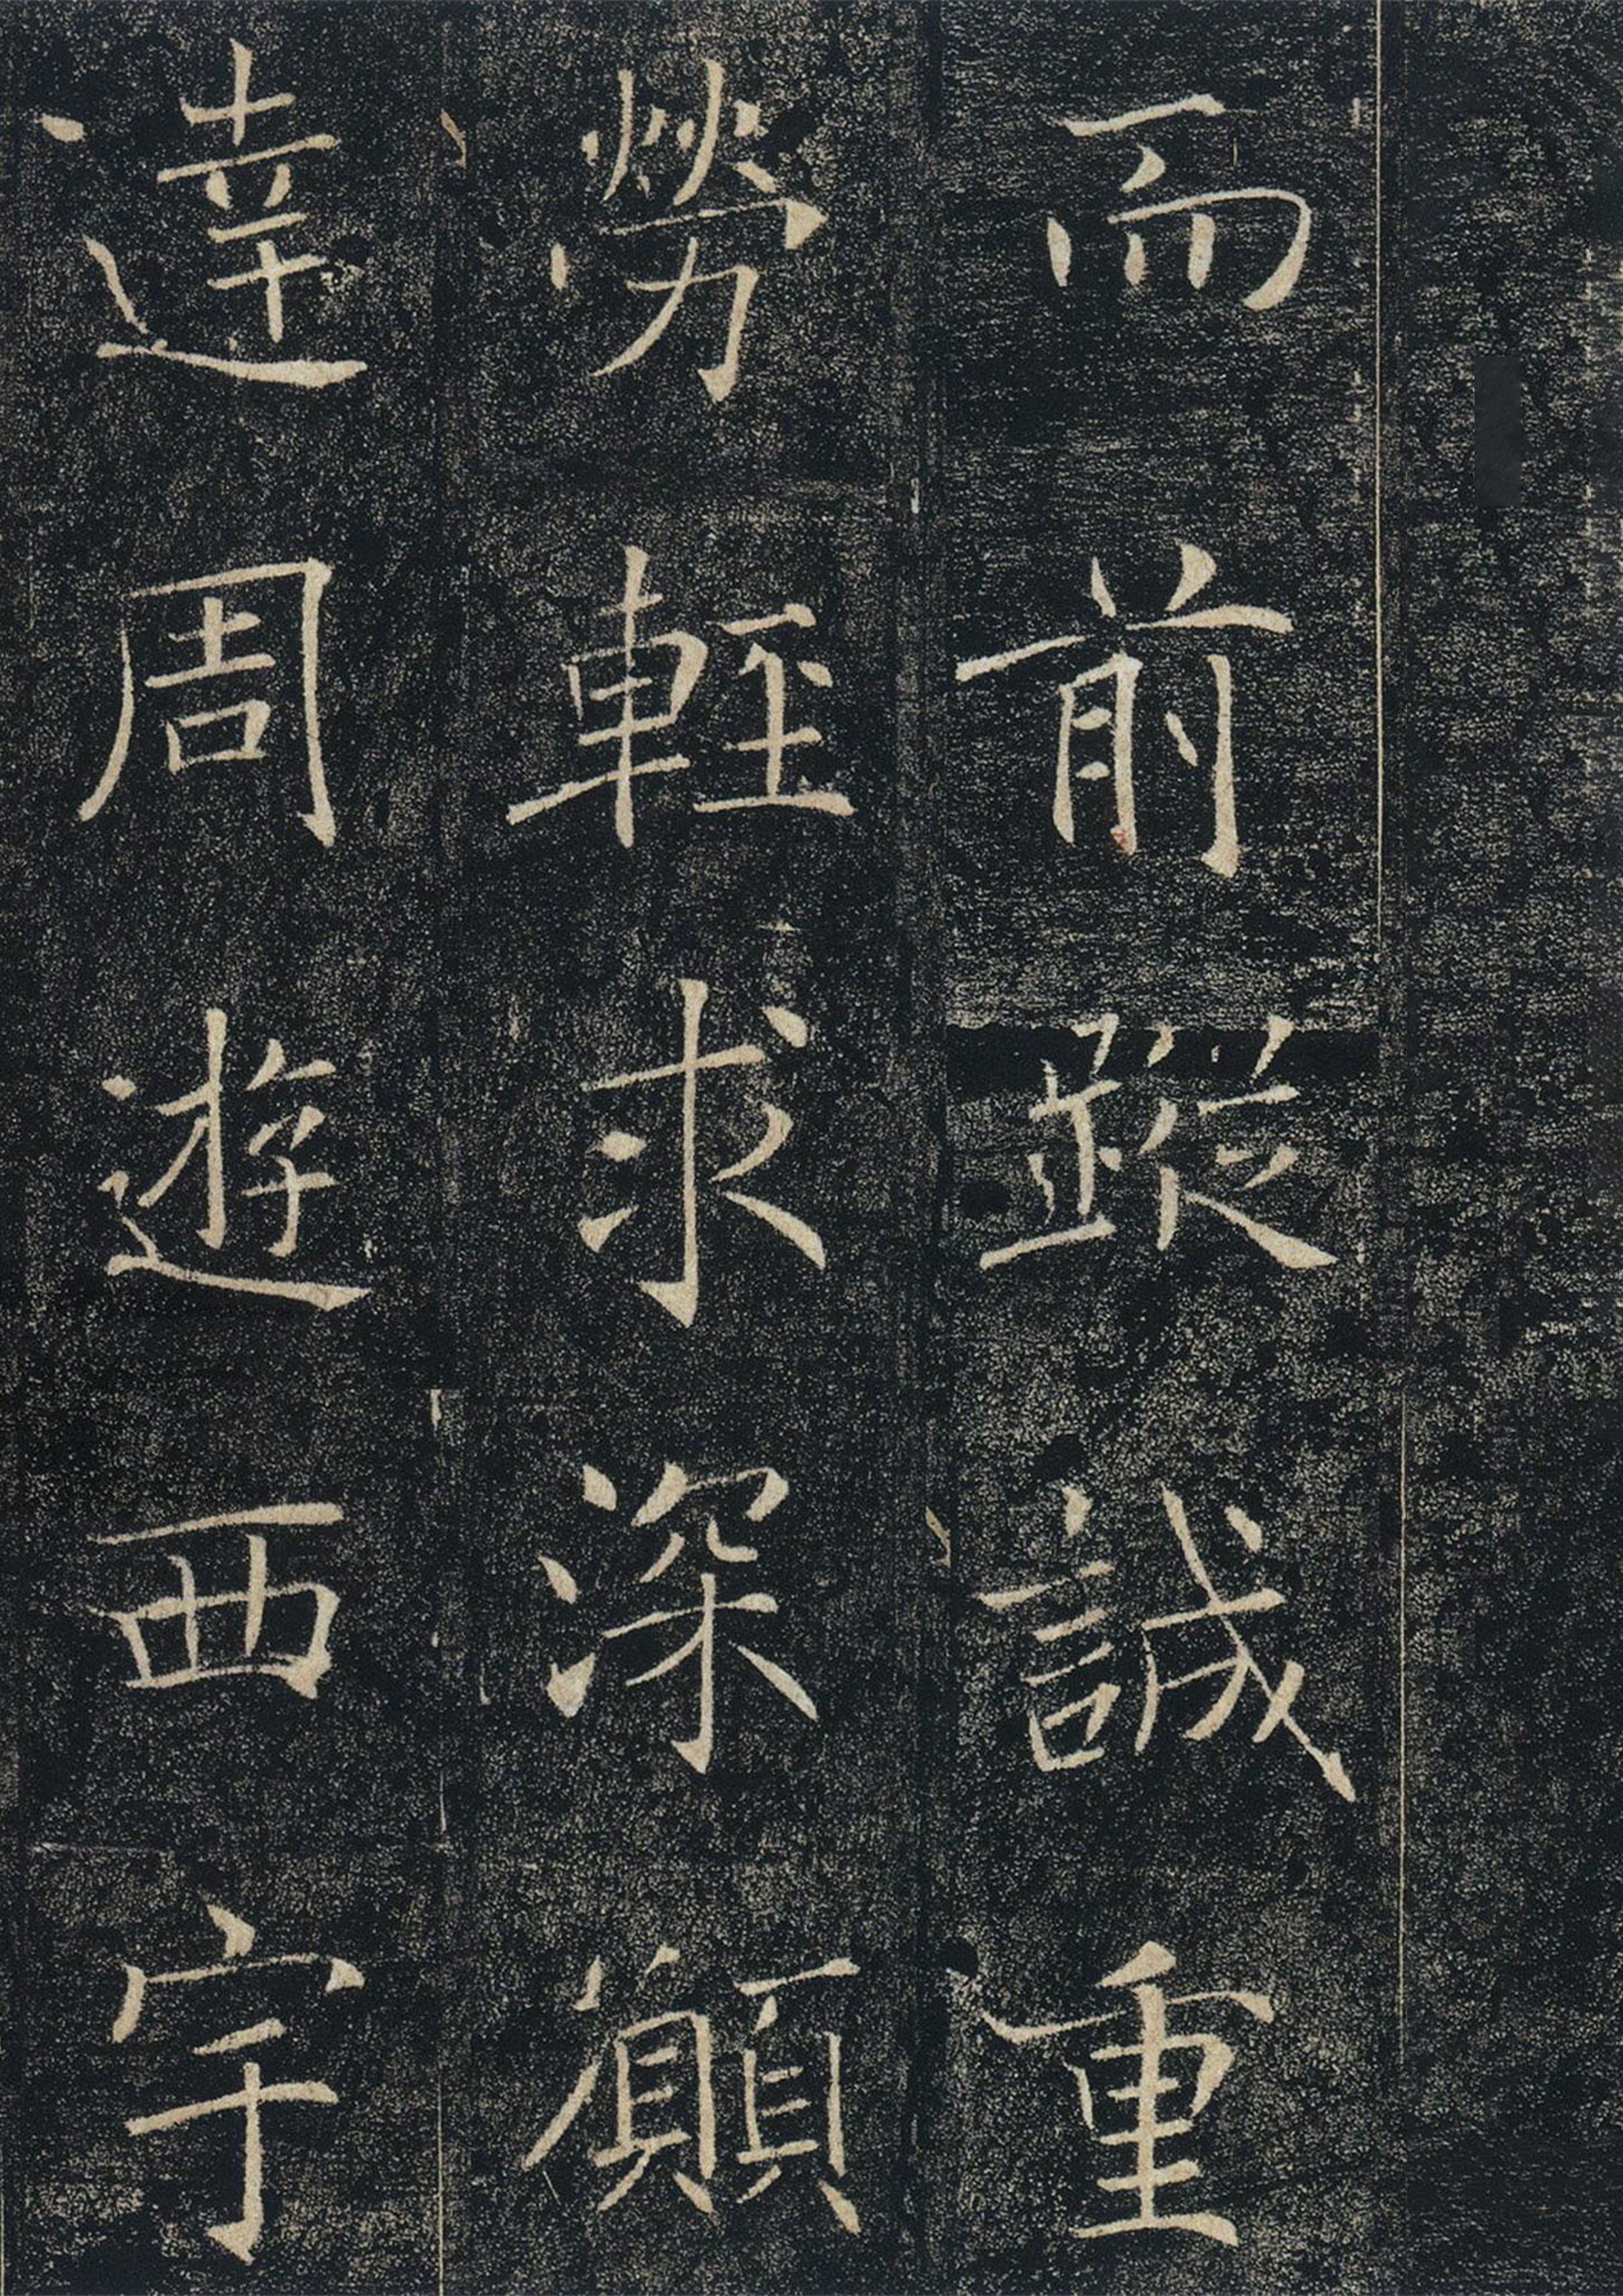 而前蹤誠重
勞輕求深願
達周遊西宇